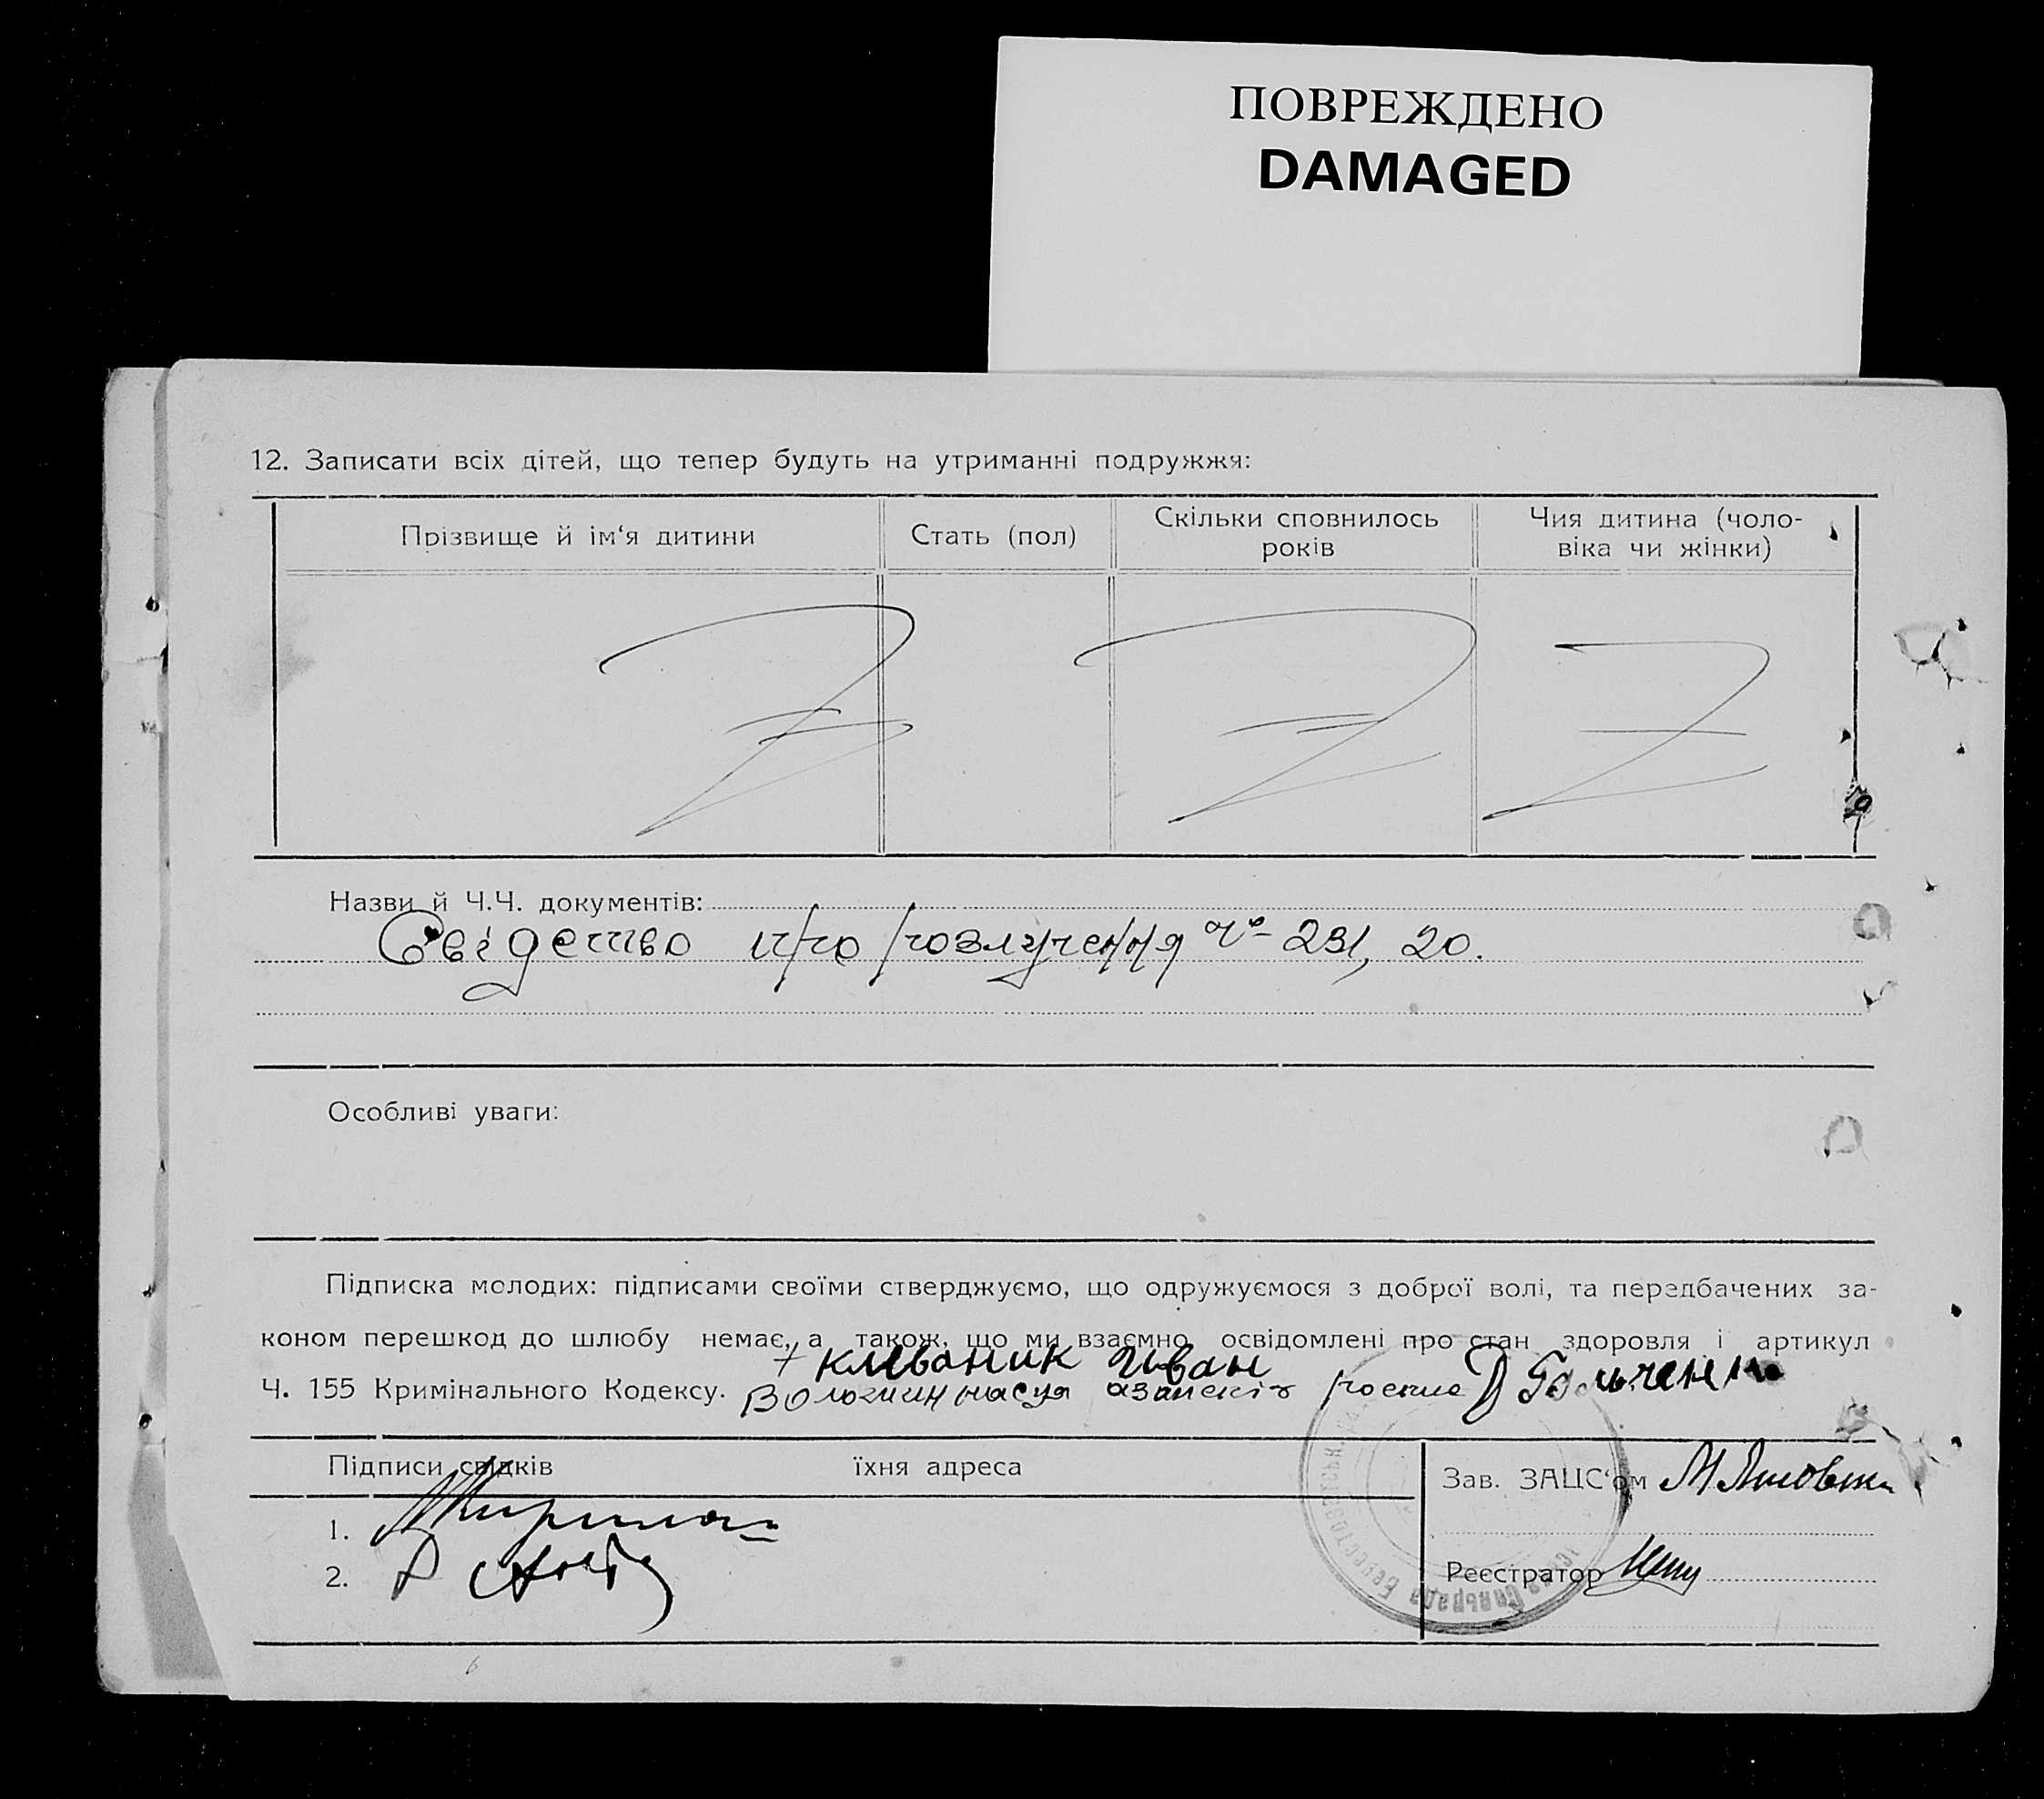 ПОВРЕЖДЕНО
DAMAGED
12. Записати всіх дітей, що тепер будуть на утриманні подружжя:
Прізвище й ім‘я дитини
Стать (пол)
Скільки сповнилось
років
Чия дитина (чоло-
віка чи жінки)
Назви й Ч.Ч. документів:
Свідетво про розлучення № 231, 20.
Особливі уваги:
Підписка молодих: підписами своїми стверджуємо, що одружуємося з доброї волі, та передбачених за-
коном перешкод до шлюбу немає, а також, що ми взаємно освідомлені про стан здоровля і артикул
Ч. 155 Кримінального Кодексу.
Иван
Підписи свідків
їхня адреса
Зав. ЗАЦС‘ом
1.
2.
Реєстратор
Сільрада